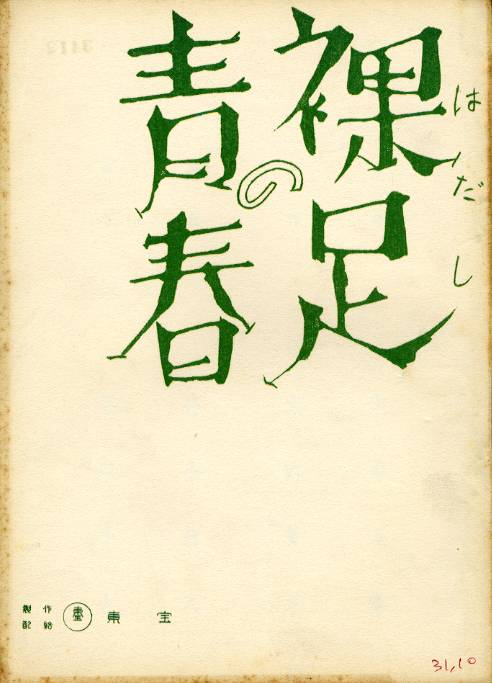 裸足の
はだし
青春
製作
配給
東宝
31,10